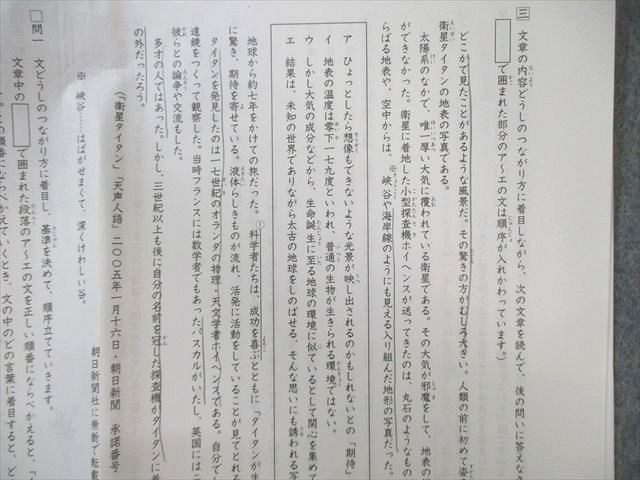 三 文章の内容どうしのつながり方に着目しながら、次の文章を読んで、後の問いに答えなさ
で囲まれた部分のア～エの文は順序が入れかわっています。)
どこかで見たことがあるような風景だ。その驚きの方がむしろ大きい。人類の前に初めて姿
衛星タイタンの地表の写真である。
太陽系のなかで、唯一厚い大気に覆われている衛星である。その大気が邪魔をして、地表の
ができなかった。衛星に着地した小型探査機ホイヘンスが送ってきたのは、丸石のようなもの
らばる地表や、空中からは、※峡谷や海岸線のようにも見える入り組んだ地形の写真だった。
ア ひょっとしたら想像もできないような光景が映し出されるのかもしれないとの「期待」
イ 地表の温度は零下一七九度といわれ、普通の生物が生きられる環境ではない。
ウ しかし大気の成分などから、生命誕生に至る地球の環境に似ているとして関心を集めて
エ 結果は、未知の世界でありながら太古の地球をしのばせる、そんな思いにも誘われる写
地球から約七年をかけての旅だった。①科学者たちは、成功を喜ぶとともに「タイタンが生
に驚き、期待を寄せている。液体らしきものが流れ、活発に活動をしていることが見てとれる
タイタンを発見したのは一七世紀のオランダの物理・天文学者ホイヘンスである。自分で
遠鏡をつくって観察した。当時フランスには数学者でもあったパスカルがいたし、英国には
彼らとの論争や交流もした。
多才の人ではあった。しかし、三世紀以上も後に自分の名前を冠した探査機がタイタンに着
の外だったろう。
(「衛星タイタン」「天声人語」二〇〇五年一月十六日・朝日新聞 承諾番号
朝日新聞社に無断で転載
※ 峡谷……はばがせまくて、深くけわしい谷。
問一 文どうしのつながり方に着目し、基準を決めて、順序立てていきます。
文章中の
で囲まれた段落のア～エの文を正しい順番にならべかえると、「
の順番にならべかえていくとき、文の中のどの言葉に着目すると、ど